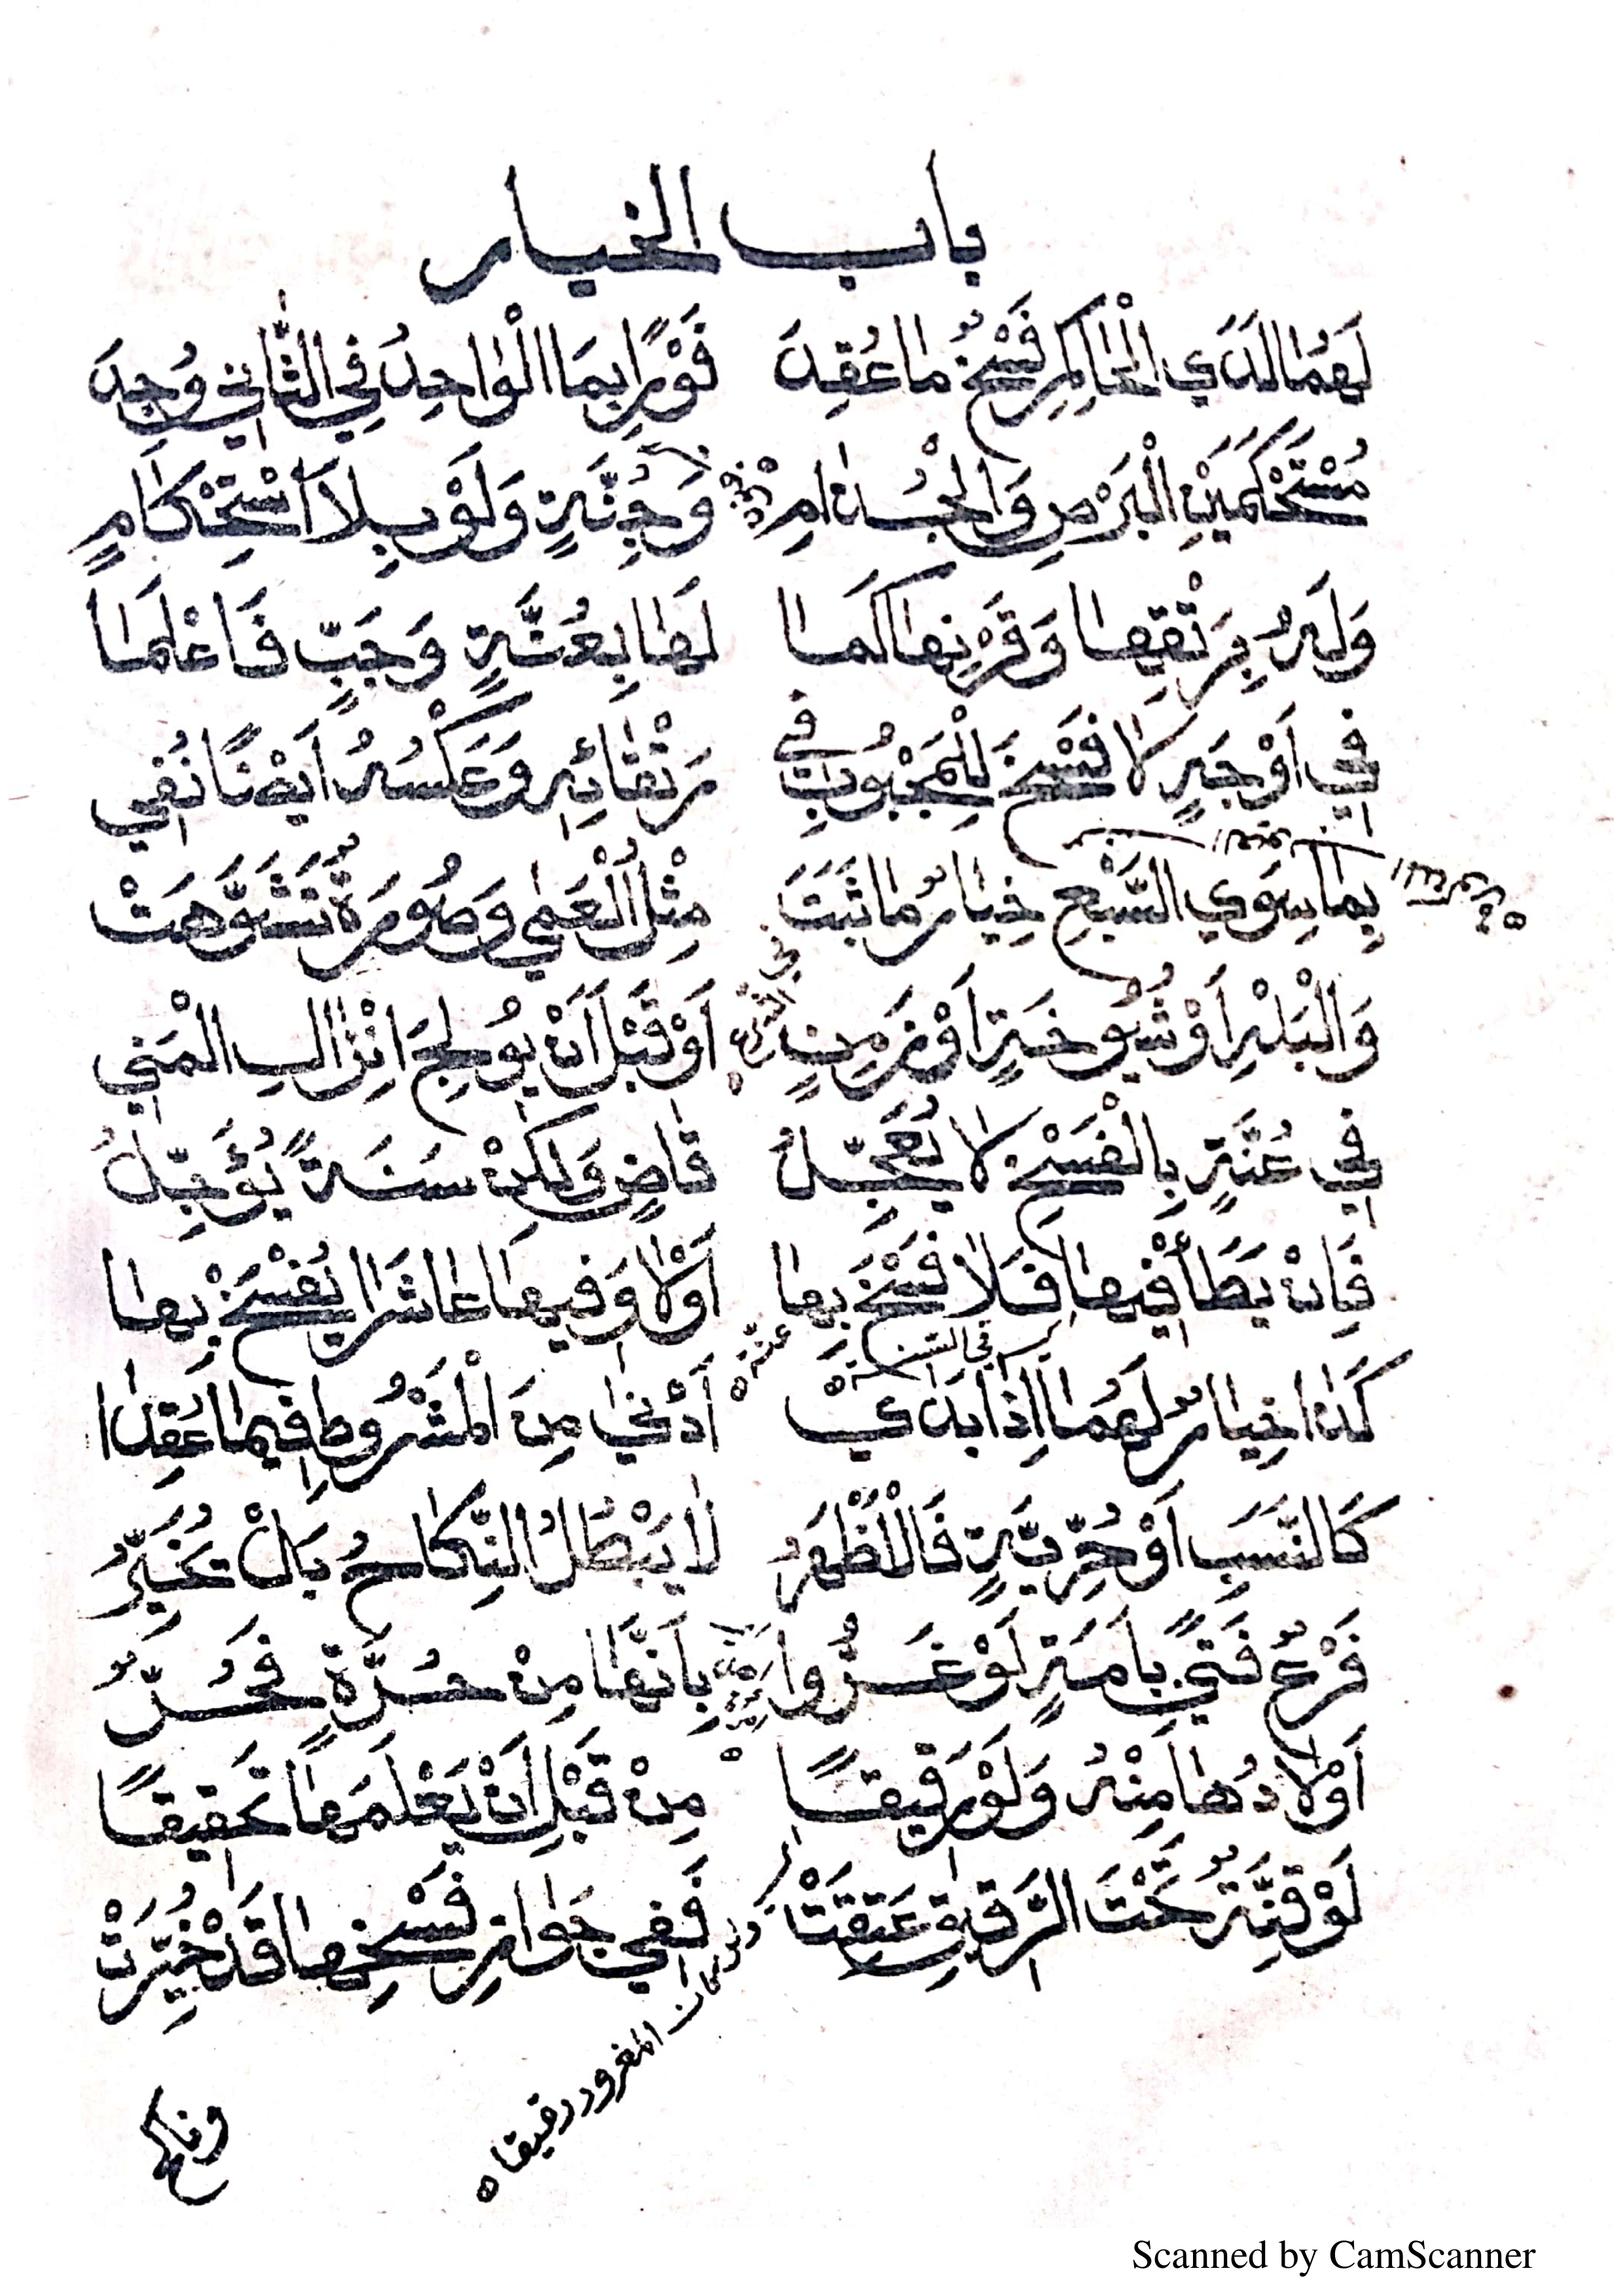 باب الخيار
لَهُمَا لَدَي الْحَاكِمِ فَسْخُ مَا عُقِدَ فَوْرًا بِمَا الْوَاحِدُ فِي الثَّانِي وُجِدَ
مُسْتَحْكَمَيْنِ الْبَرَصِ وَالْجُذَامِ وَجِنَّةٍ وَلَوْ بِلَا اسْتِحْكَامٍ
وَلَهُ بِرَتْقِهَا وَقَرْنِهَا كَمَا لَهَا بِعُنَّةٍ وَجَبٍّ فَاعْلَمَا
فِي أَوْجَهٍ لَا فَسْخَ لِلْمَجْبُوبِ فِي رَتْقَائِهِ وَعَكْسُهُ أَيْضًا نُفِي
بِمَا سِوَي السَّبْعِ خِيَارٌ مَا ثَبَتَ مِثْلُ الْعَمَي وَصُورَةٌ تَشَوَّهَتْ
وَالْبَلَهِ أَوْ شُيُوخَةٍ أَوْ زَمِنٍ أَوْ قَبْلَ أَنْ يُولِجَ انْزَالِ الْمَنِي
فِي عُنَّةٍ بِالْفَسْخِ لَا يُعَجِّلُ قَاضٍ وَلَكِنْ سَنَةً يُؤَجِّلُ
فَإِنْ يَطَأْ فِيهَا فَلَا فَسْخَ بِهَا أَوْ لَا وَفِيهَا عَاشَرَا يُفْسَخْ بِهَا
في السنة
عشرة
كَذَا خِيَارٌ لَهُمَا إِذَا بَدَا أَدْنَى مِنَ الْمَشْرُوطِ فِيمَا عُقِدَا
كَالنَّسَبِ أَوْ حُرِّيَّةٍ فَالْأَظْهَرُ لَا يَبْطُلُ النِّكَاحُ بَلْ تُخَيَّرُ
فَرْعٌ فَتًى بِأَمَةٍ لَوْ غَرُّوا بِأَنَّهَا مِنْ حُرَّةٍ فَحُرٌّ
أَوْلَادُهَا مِنْهُ وَلَوْ رَقِيقًا مِنْ قَبْلِ أَنْ يَعْلَمَهَا تَحْقِيقًا
لَوْ قِنَّةٌ تَحْتَ الرَّقِيقِ عَتَقَتْ فَفِي جَوَازِ فَسْخِهَا قَدْ خُيِّرَتْ
كان المغرور رقيقا
Scanned by CamScanner